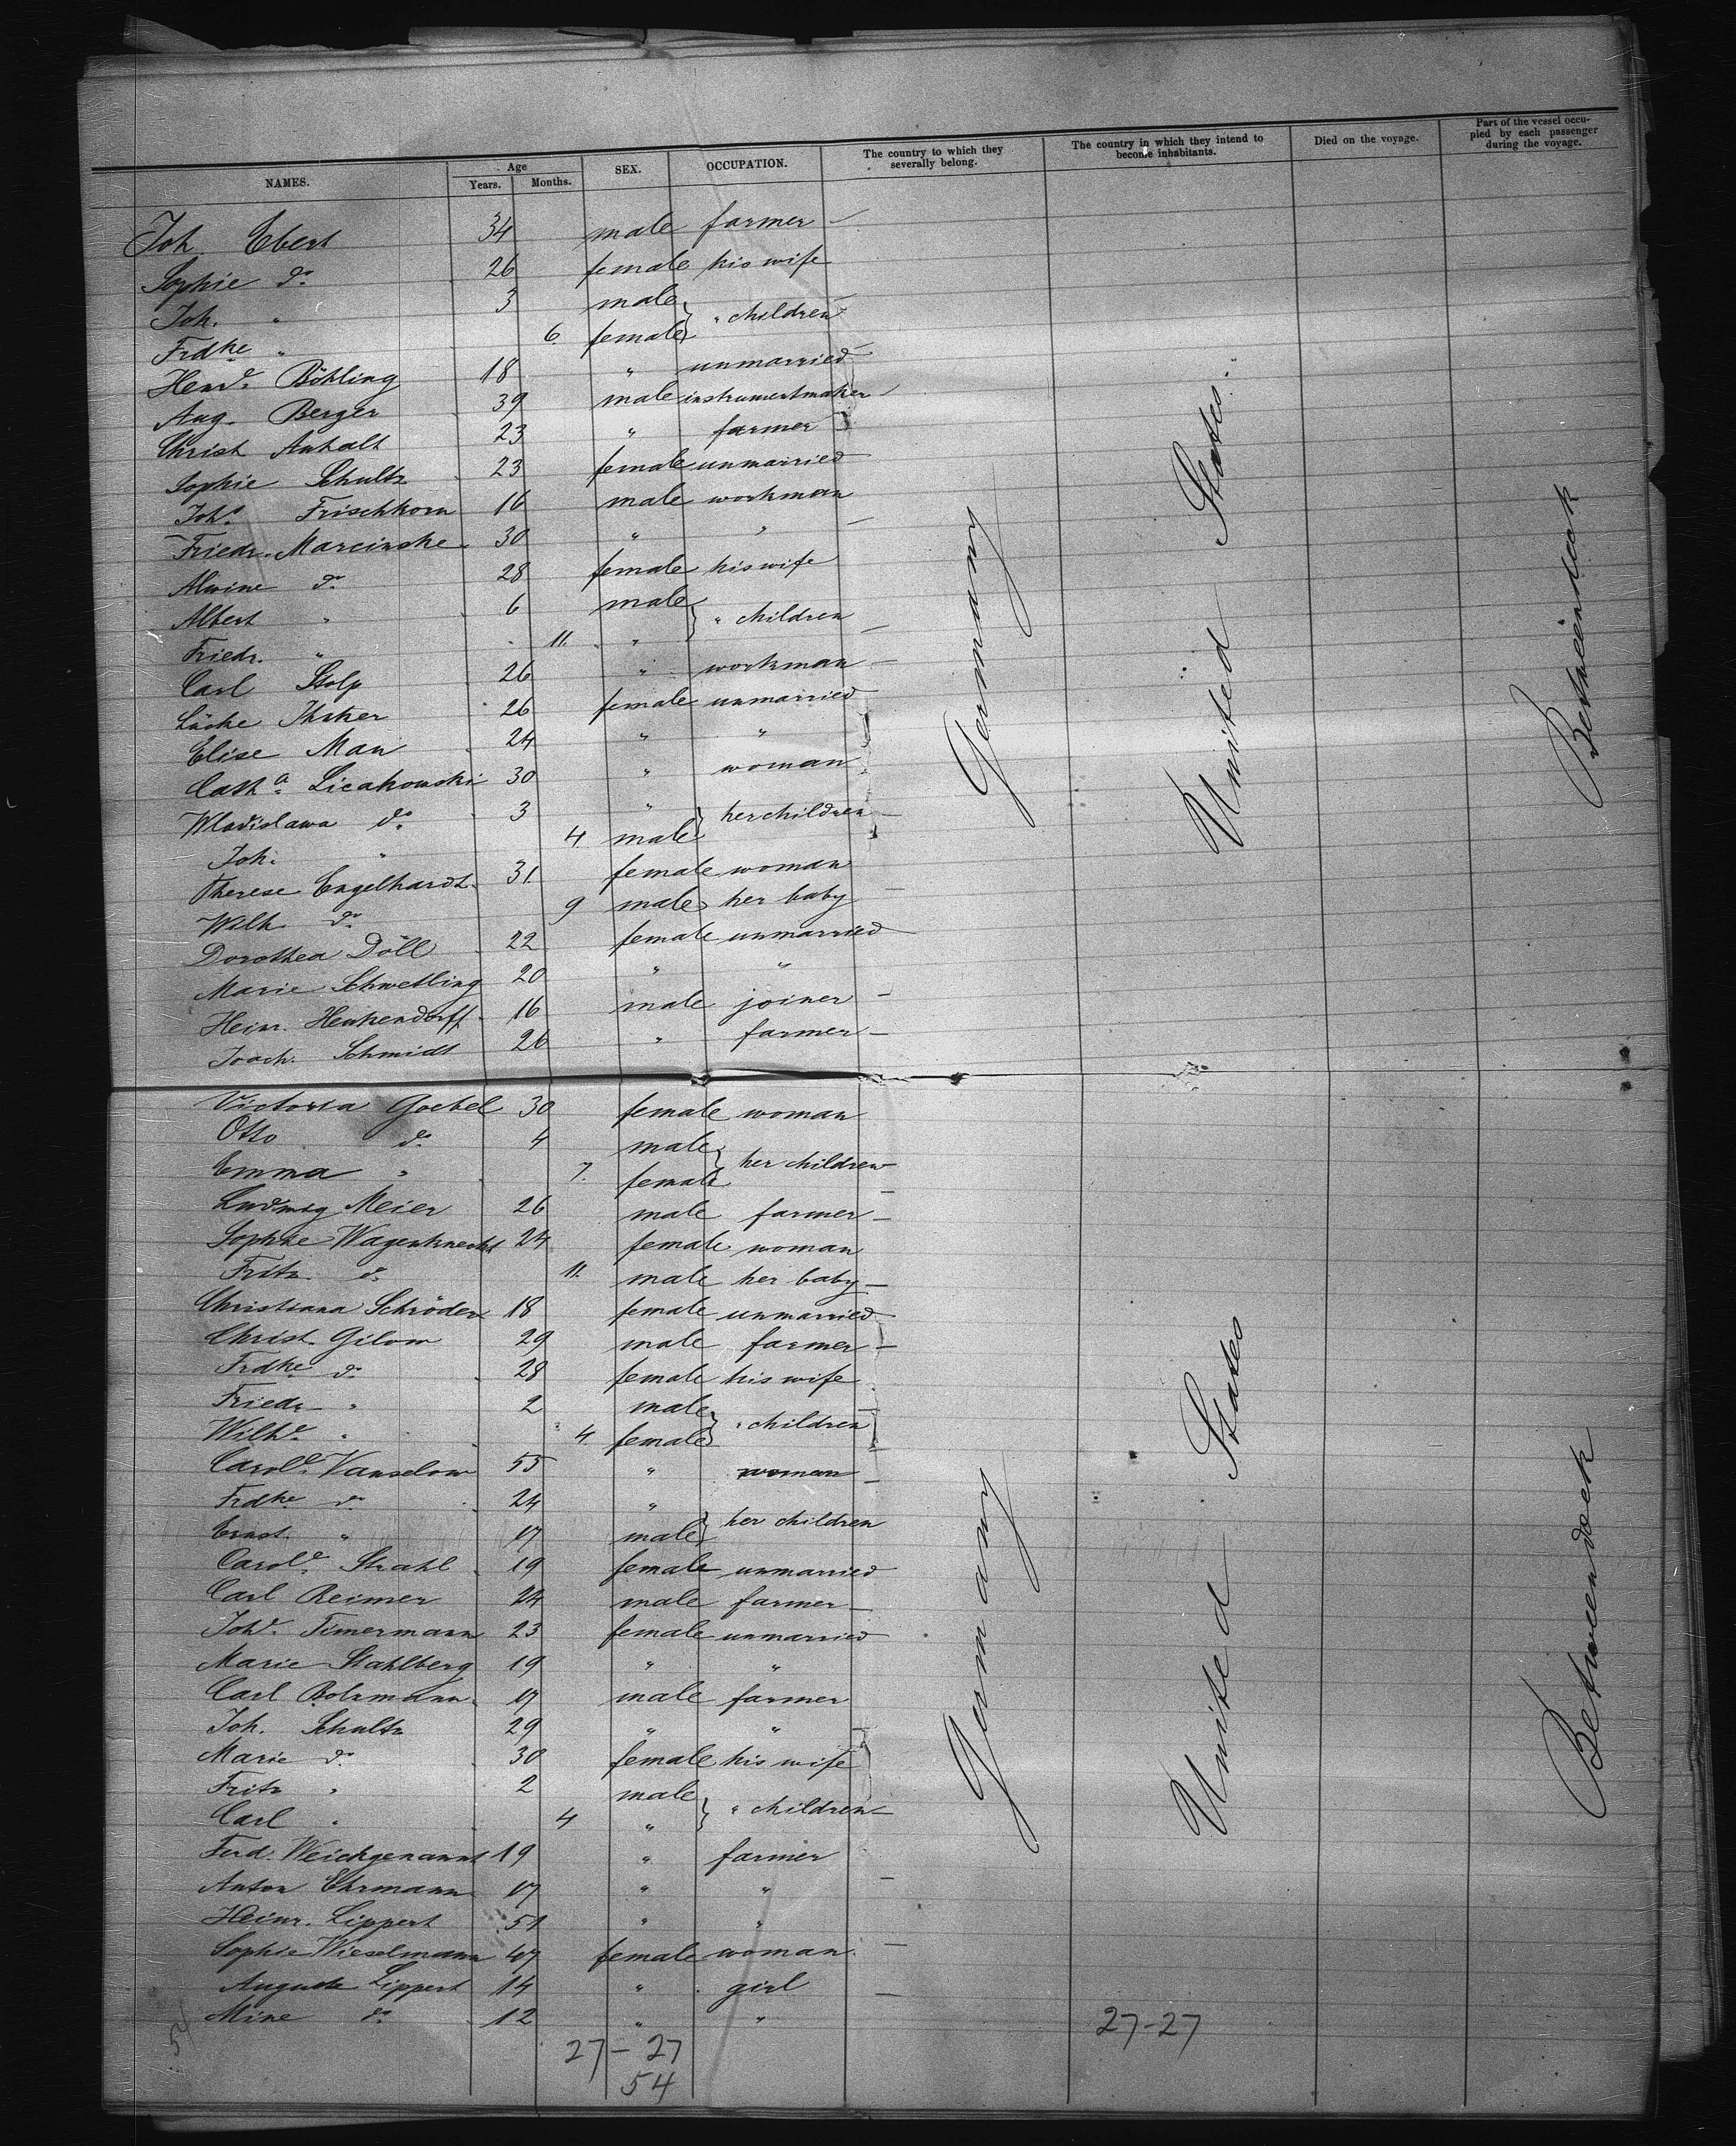 NAMES. Age Years. Months. SEX. OCCUPATION. The country to which they severally belong. The country in which they intend to become inhabitants. Died on the voyage. Part of the vessel occupied by each passenger during the voyage.
Joh. Ebert 34 male farmer
Sophie do 26 female his wife
Joh. " 3 male
Frdke " 6. female " children
Henr. Böhling 18 " unmarried
Aug. Berger 39 male instrumentmaker
Christ Anhalt 23 " farmer
Sophie Schultz 23 female unmarried
Johs. Frischkorn 16 male workman
Friedr. Marcinske 30 " "
Alwine do 28 female his wife
Albert " 6 male
Friedr. " 11. " " children
Carl Stolp 26 " workman
26 female unmarried
Elise Mau 24 " "
Catha. Licakowski 30 " woman
Wladislawa do. 3 "
Joh. " 4 male her children
Therese Engelhardt 31. female woman
Wilh. do. 9 male her baby
Dorothea Döll 22 female unmarried
Marie Schwetling 20 " "
Heinr. Henkendorff 16 male joiner
Joach. Schmidt 26 " farmer
Germany
United States.
Betweendeck
Victoria Goebel 30 female woman
Otto do. 4 male
Emma " 7. female her children
Ludwig Meier 26 male farmer
Sophie Wagenknecht 24 female woman
Fritz do. 11. male her baby
Christiana Schröder 18 female unmarried
Christ. Gilow 29 male farmer
Frdke do. 28 female his wife
Friedr. " 2 male
Wilhe. " 4. female " children
Carole. Vanselow 55 " woman
Frdke do. 24 "
Ernst " 17 male her children
Carole. Strahl 19 female unmarried
Carl Reimer 24 male farmer
Johe. Timermann 23 female unmarried
Marie Stahlberg 19 " "
Carl Bolzmann 17 male farmer
Joh. Schultz 29 " "
Marie do. 30 female his wife
Fritz " 2 male
Carl " 4 " " children
Ferd. Weichgenannt 19 " farmer
Anton Ehrmann 17 " "
Heinr. Lippert 51 " "
Sophie Wieselmann 47 female woman
Auguste Lippert 14 " girl
Mine do. 12 " "
Germany
United States
Betweendeck
54
27-27
54
27-27